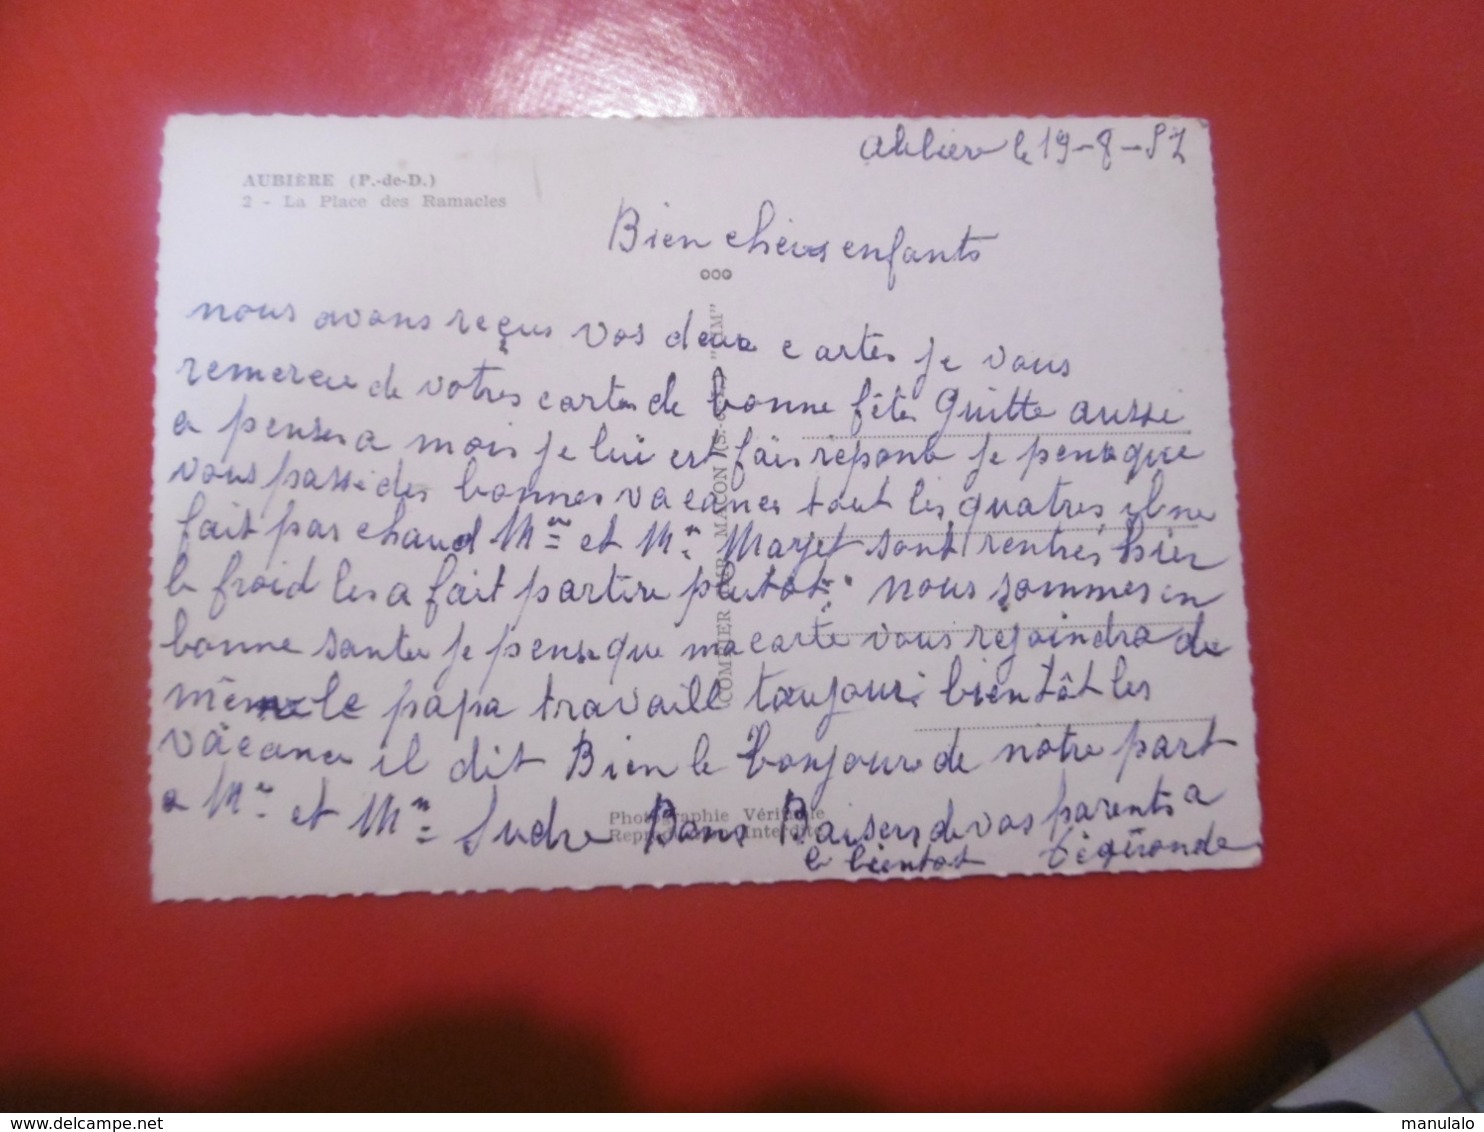 AUBIÈRE (P.-de-D.)
2 - La Place des Ramacles
le 19-8-57
Bien chers enfants
nous avons reçus vos deux cartes je vous
remercie de votres cartes de bonne fêtes Guitte aussi
a penses a mois je lui est fais répons je pense que
vous passé des bonnes vacances tout les quatres il ne
fait pas chaud Mme et Mr Marjet sont rentrés hier
le froid les a fait partire plutot. nous sommes en
bonne santée je pense que ma carte vous rejoindra de
même le papa travaill toujours bientôt les
vâcances il dit Bien le bonjoure de notre part
a Mr et Mme Sudre Bons Baisers de vos parents a
bientot
COMBIER IMP. MACON (S.-et-L.) "CIM"
Photographie Véritable
Reproduction Interdite
www.delcampe.net
manulalo